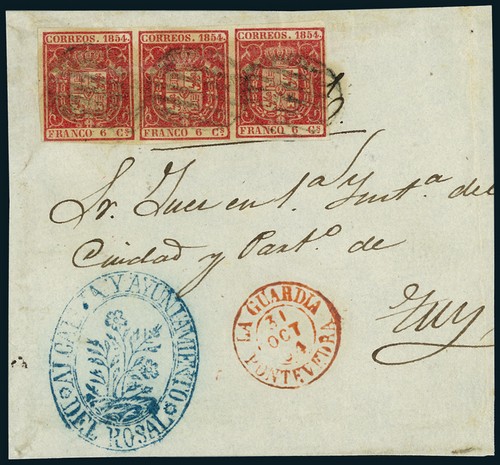 CORREOS. 1854. CORREOS. 1854. CORREOS. 1854.
FRANCO 6 Cs. FRANCO 6 Cs. FRANCO 6 Cs.
Sr. Juez en 1ª Ynstª del
Ciudad y Partº de
Tuy
LA GUARDIA
31
OCT
54
PONTEVEDRA
ALCALDIA Y AYUNTAMIENTO
DEL ROSAL